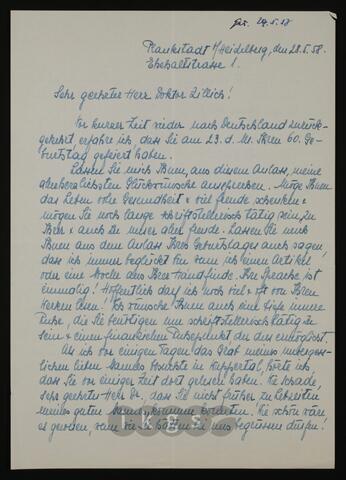 29.5.58
Plankstadt b/Heidelberg, den 28.5.58.
Ehehaltstrasse 1.
Sehr geehrter Herr Doktor Zillich!
Vor kurzer Zeit wieder nach Deutschland zurück-
gekehrt, erfahre ich, dass Sie am 23. d. M. Ihren 60. Ge-
burtstag gefeiert haben.
Lassen Sie mich Ihnen, aus diesem Anlass, meine
allerherzlichsten Glückwünsche aussprechen. Möge Ihnen
das Leben viel Gesundheit & viel Freude schenken &
mögen Sie noch lange schriftstellerisch tätig sein zu
Ihrer & auch zu unser aller Freude. Lassen Sie mich
Ihnen aus dem Anlass Ihres Geburtstages auch sagen,
dass ich immer beglückt bin wenn ich einen Artikel
oder eine Buch von Ihrer Hand finde. Ihre Sprache ist
einmalig! Hoffentlich darf ich noch viel & oft von Ihnen
lesen! Ich wünsche Ihnen auch eine tiefe innere
Ruhe, die Sie benötigen um schriftstellerisch tätig zu
sein & einen finanziellen Ruhepunkt der das ermöglicht.
Als ich vor einigen Tagen das Grab meines unvergess-
lichen lieben Mannes besuchte in Wuppertal, hörte ich
dass Sie vor einiger Zeit dort gelesen haben. Wie schade,
sehr geehrter Herr Dr. dass Sie nicht früher zu Lebzeiten
meines guten Mannes kommen konnten! Wie schön wäre
es gewesen, wenn wir Sie hätten bei uns begrüssen dürfen!
ikgs